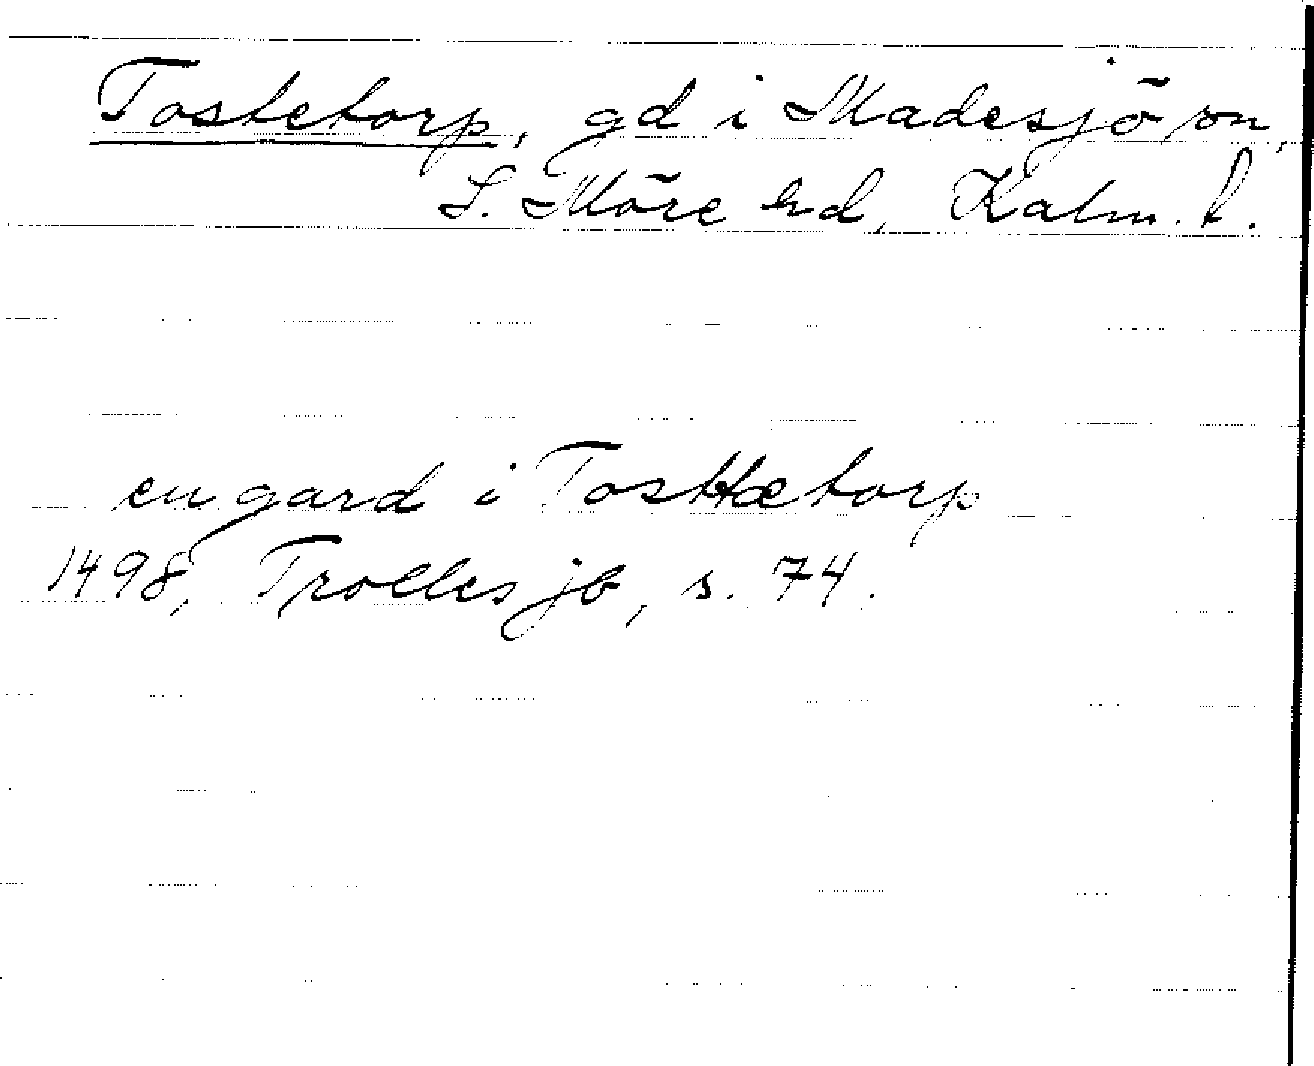 Tostetorp, gd i Madesjö sn,
S. Möre hd, Kalm. l.
en gard i Tosttætorp
1498, Trolles jb, s. 74.